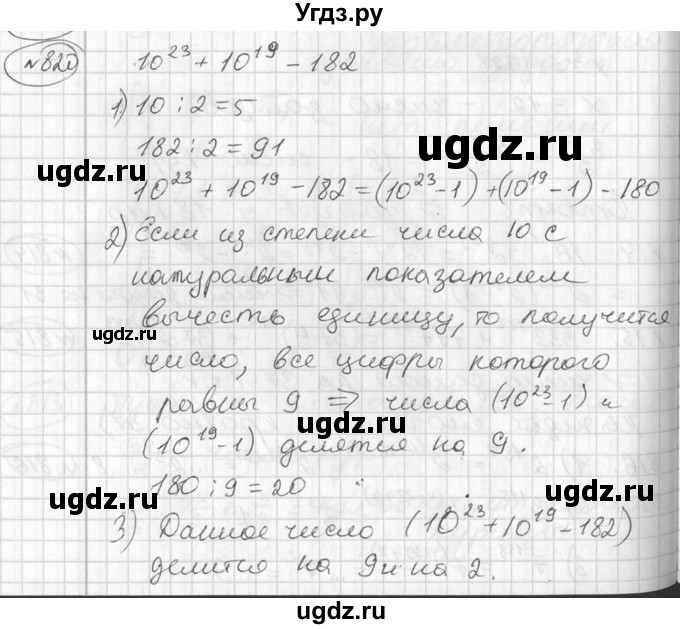 Угдз.ру
№820 10^23 + 10^19 - 182
1) 10 : 2 = 5
182 : 2 = 91
10^23 + 10^19 - 182 = (10^23 - 1) + (10^19 - 1) - 180
2) Если из степени числа 10 с
натуральным показателем
вычесть единицу, то получится
число, все цифры которого
равны 9 => числа (10^23 - 1) и
(10^19 - 1) делятся на 9.
180 : 9 = 20
3) Данное число (10^23 + 10^19 - 182)
делится на 9 и на 2.
ugdz.ru
ugdz.ru
ugdz.ru
ugdz.ru
ugdz.ru
ugdz.ru
ugdz.ru
ugdz.ru